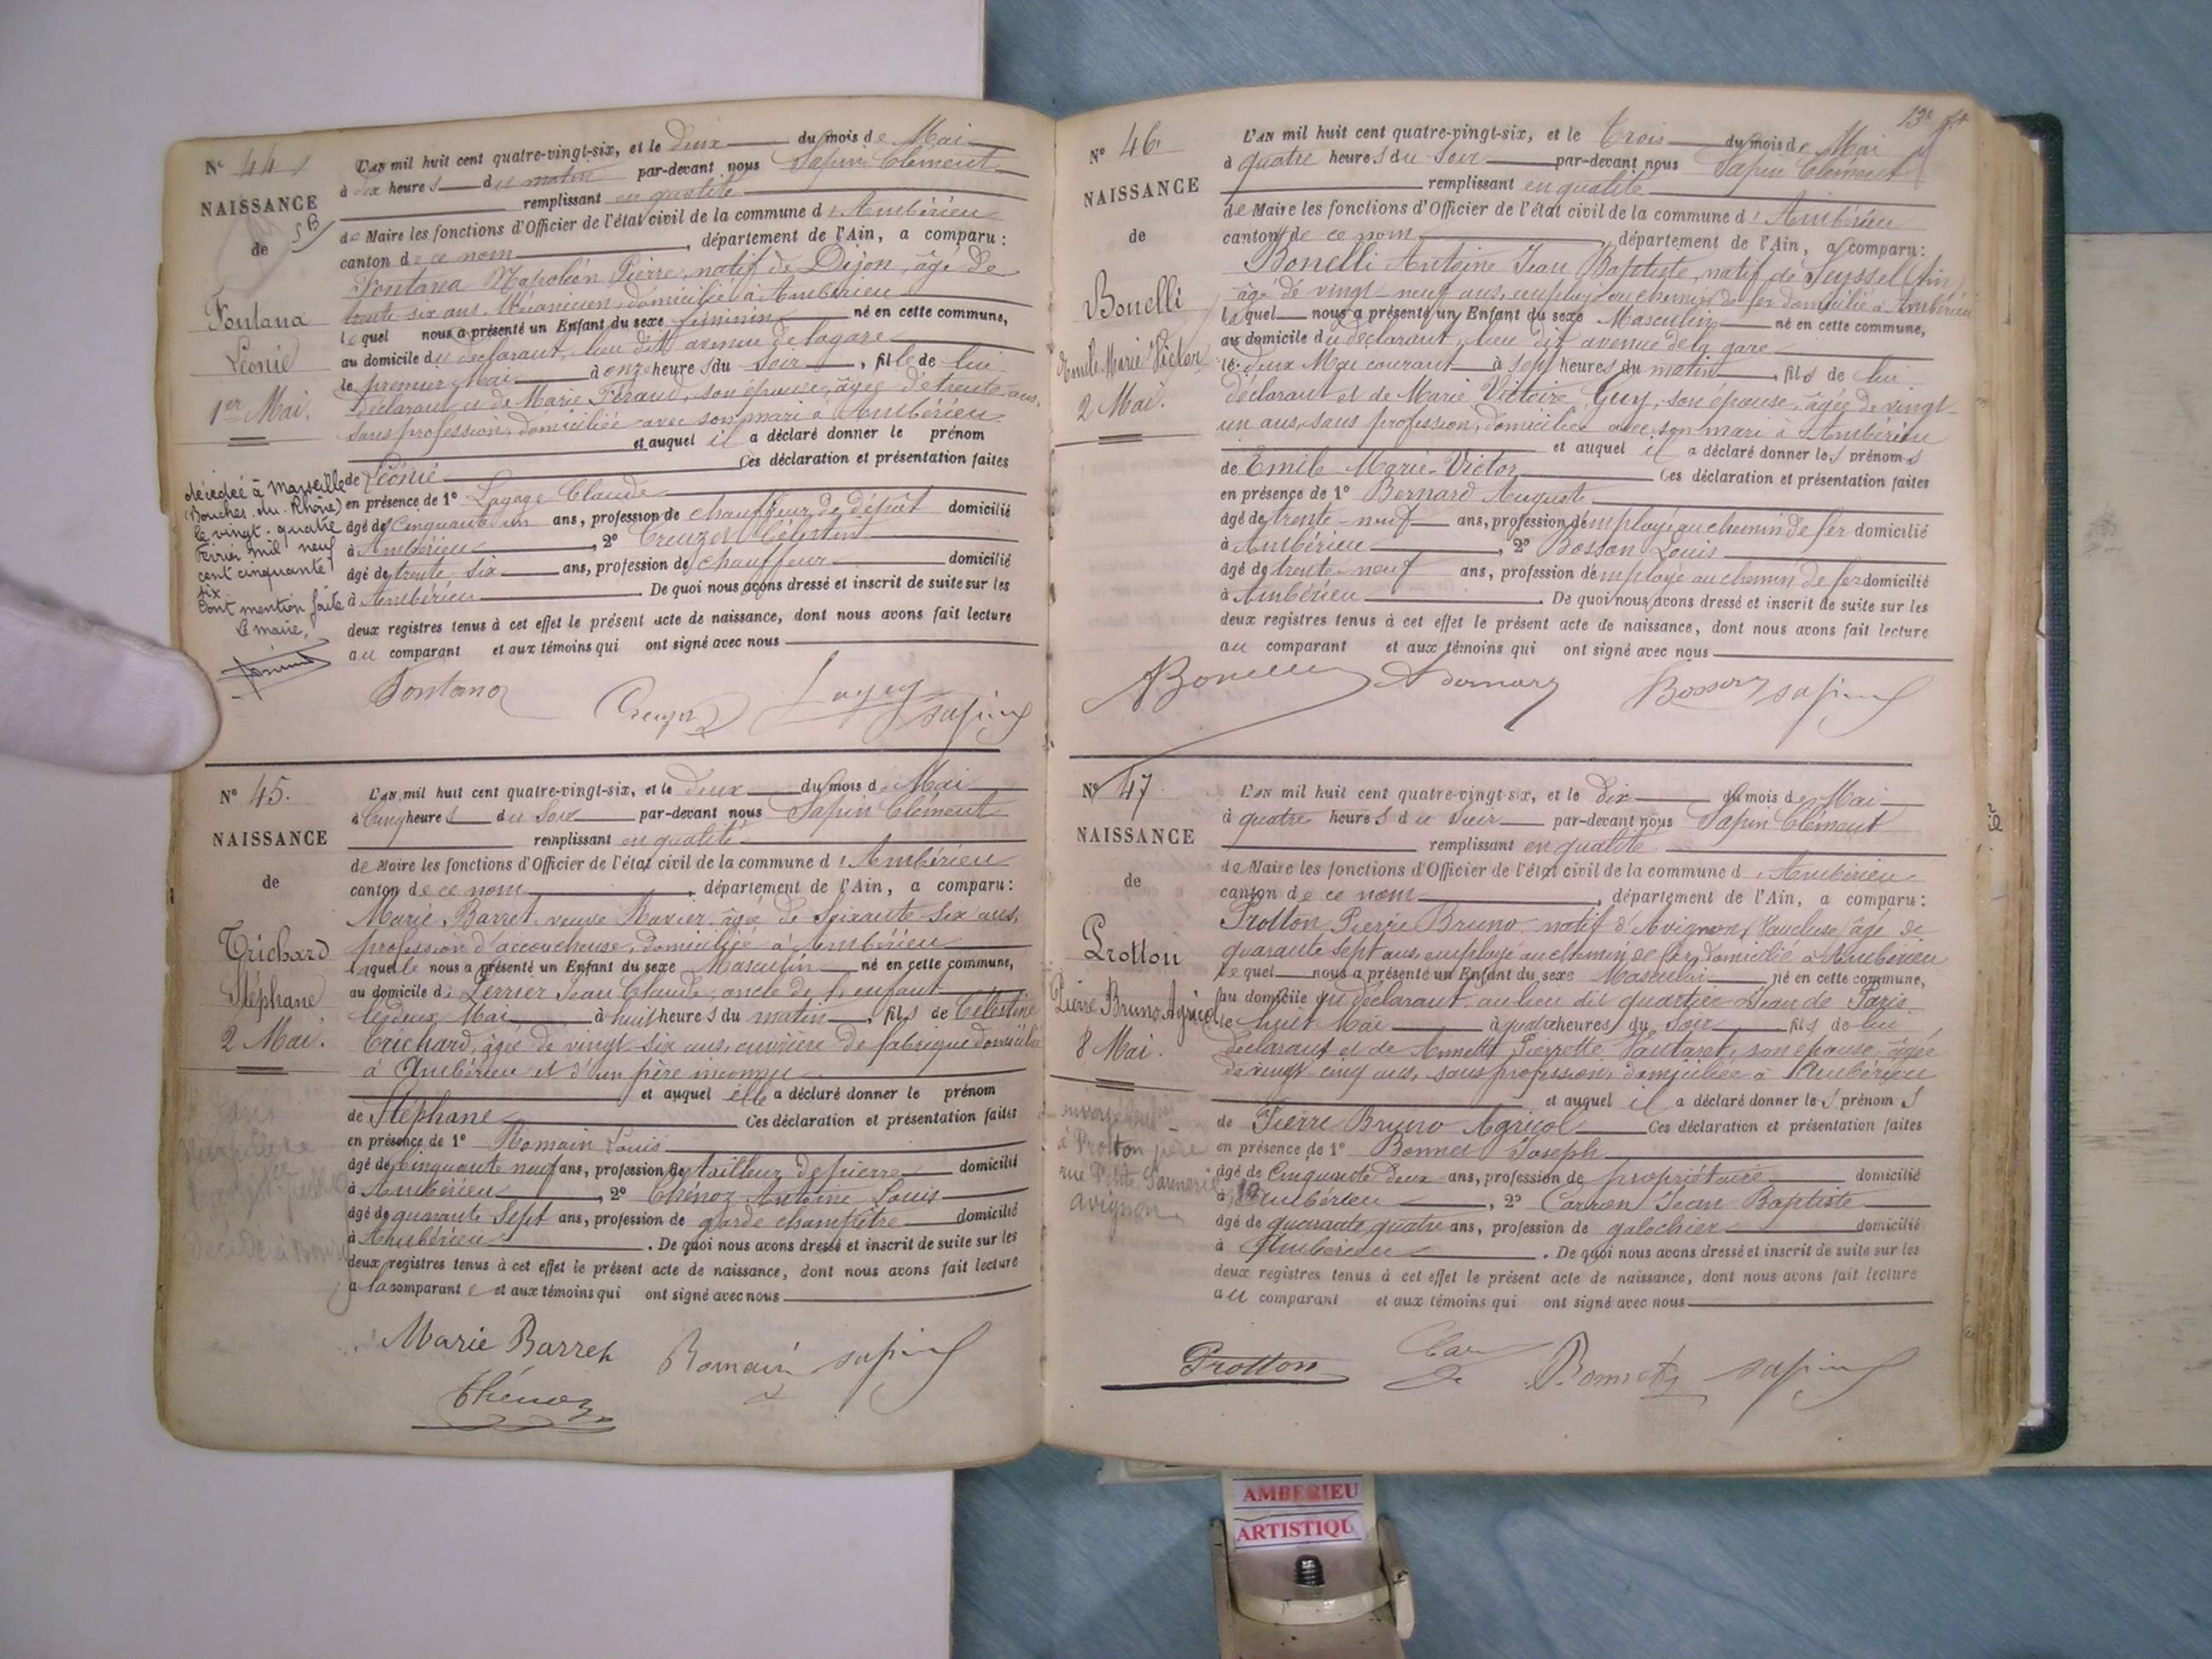 N° 44
NAISSANCE
de
Fontana
Léonie
1er Mai.
décédée à Marseille
(Bouches-du-Rhône)
le vingt-quatre
Février mil neuf
cent cinquante
six.
Dont mention faite
Le maire,
L'AN mil huit cent quatre-vingt-six, et le deux du mois de Mai
à dix heures du matin par-devant nous Sapin Clément
remplissant en qualité
de Maire les fonctions d'Officier de l'état civil de la commune d'Ambérieu
canton de ce nom, département de l'Ain, a comparu:
Fontana Napoléon Pierre, natif de Dijon, âgé de
trente six ans, Mécanicien, domicilié à Ambérieu
lequel nous a présenté un Enfant du sexe féminin né en cette commune,
au domicile du déclarant, lieu dit avenue de la gare
le premier Mai à onze heures du soir, fille de lui
déclarant et de Marie Féraud, son épouse, âgée de trente ans,
sans profession, domiciliée avec son mari à Ambérieu
et auquel il a déclaré donner le prénom
de Léonie Ces déclaration et présentation faites
en présence de 1° Lagage Claude
âgé de Cinquante un ans, profession de chauffeur de dépôt domicilié
à Ambérieu, 2° Creuzet Célestin
âgé de trente six ans, profession de chauffeur domicilié
à Ambérieu. De quoi nous avons dressé et inscrit de suite sur les
deux registres tenus à cet effet le présent acte de naissance, dont nous avons fait lecture
au comparant et aux témoins qui ont signé avec nous
Fontana Creuzet Sapin
N° 45.
NAISSANCE
de
Trichard
Stéphane
2 Mai.
L'AN mil huit cent quatre-vingt-six, et le deux du mois de Mai
à Cinq heures du Soir par-devant nous Sapin Clément
remplissant en qualité
de Maire les fonctions d'Officier de l'état civil de la commune d'Ambérieu
canton de ce nom, département de l'Ain, a comparu:
Marie Barret veuve âgée de Soixante-six ans,
profession d'accoucheuse, domiciliée à Ambérieu
laquelle nous a présenté un Enfant du sexe Masculin né en cette commune,
au domicile de Perrier Jean Claude, oncle de l'enfant
le deux Mai à huit heures du matin, fils de Célestine
Trichard, âgée de vingt six ans, ouvrière de fabrique domiciliée
à Ambérieu et d'un père inconnu
et auquel elle a déclaré donner le prénom
de Stéphane Ces déclaration et présentation faites
en présence de 1° Romain Louis
âgé de Cinquante neuf ans, profession de tailleur de pierre domicilié
à Ambérieu, 2° Thénoz Antoine Louis
âgé de quarante Sept ans, profession de garde champêtre domicilié
à Ambérieu. De quoi nous avons dressé et inscrit de suite sur les
deux registres tenus à cet effet le présent acte de naissance, dont nous avons fait lecture
a la comparante et aux témoins qui ont signé avec nous
Marie Barret Romain Sapin
Thénoz
N° 46
NAISSANCE
de
Bonelli
Emile Marie Victor
2 Mai.
L'AN mil huit cent quatre-vingt-six, et le Trois du mois de Mai
à quatre heures du Soir par-devant nous Sapin Clément
remplissant en qualité
de Maire les fonctions d'Officier de l'état civil de la commune d'Ambérieu
canton de ce nom, département de l'Ain, a comparu:
Bonelli Antoine Jean Baptiste, natif de Seyssel (Ain)
âgé de vingt-neuf ans, employé au chemin de fer domicilié à Ambérieu
lequel nous a présenté un Enfant du sexe Masculin né en cette commune,
au domicile du déclarant, lieu dit avenue de la gare
le deux Mai courant à Sept heures du matin, fils de lui
déclarant et de Marie Victoire Guy, son épouse, âgée de vingt-
un ans, sans profession, domiciliée avec son mari à Ambérieu
et auquel il a déclaré donner les prénoms
de Emile Marie-Victor Ces déclaration et présentation faites
en présence de 1° Bernard Auguste
âgé de trente-neuf ans, profession d'employé au chemin de fer domicilié
à Ambérieu, 2° Bosson Louis
âgé de trente-neuf ans, profession d'employé au chemin de fer domicilié
à Ambérieu. De quoi nous avons dressé et inscrit de suite sur les
deux registres tenus à cet effet le présent acte de naissance, dont nous avons fait lecture
au comparant et aux témoins qui ont signé avec nous
ABonelli ABernard Bosson Sapin
N° 47
NAISSANCE
de
Protton
Pierre Bruno Agricol
8 Mai.
à Protton père
avignon
L'AN mil huit cent quatre-vingt-six, et le dix du mois de Mai
à quatre heures du soir par-devant nous Sapin Clément
remplissant en qualité
de Maire les fonctions d'Officier de l'état civil de la commune d'Ambérieu
canton de ce nom, département de l'Ain, a comparu:
Protton Pierre Bruno, natif d'Avignon (Vaucluse) âgé de
quarante sept ans, employé au chemin de fer, domicilié à Ambérieu
lequel nous a présenté un Enfant du sexe Masculin né en cette commune,
au domicile du déclarant, au lieu dit quartier Jean de Paris
le huit Mai à quatre heures du Soir fils de lui
déclarant et de Annette Pierrette Vautaret, son épouse, âgée
de vingt cinq ans, sans profession, domiciliée à Ambérieu
et auquel il a déclaré donner les prénoms
de Pierre Bruno Agricol Ces déclaration et présentation faites
en présence de 1° Bonnet Joseph
âgé de Cinquante Deux ans, profession de propriétaire domicilié
à Ambérieu, 2° Carron Jean Baptiste
âgé de quarante quatre ans, profession de galochier domicilié
à Ambérieu. De quoi nous avons dressé et inscrit de suite sur les
deux registres tenus à cet effet le présent acte de naissance, dont nous avons fait lecture
au comparant et aux témoins qui ont signé avec nous
Protton Bonnet Sapin
AMBERIEU
ARTISTIQU